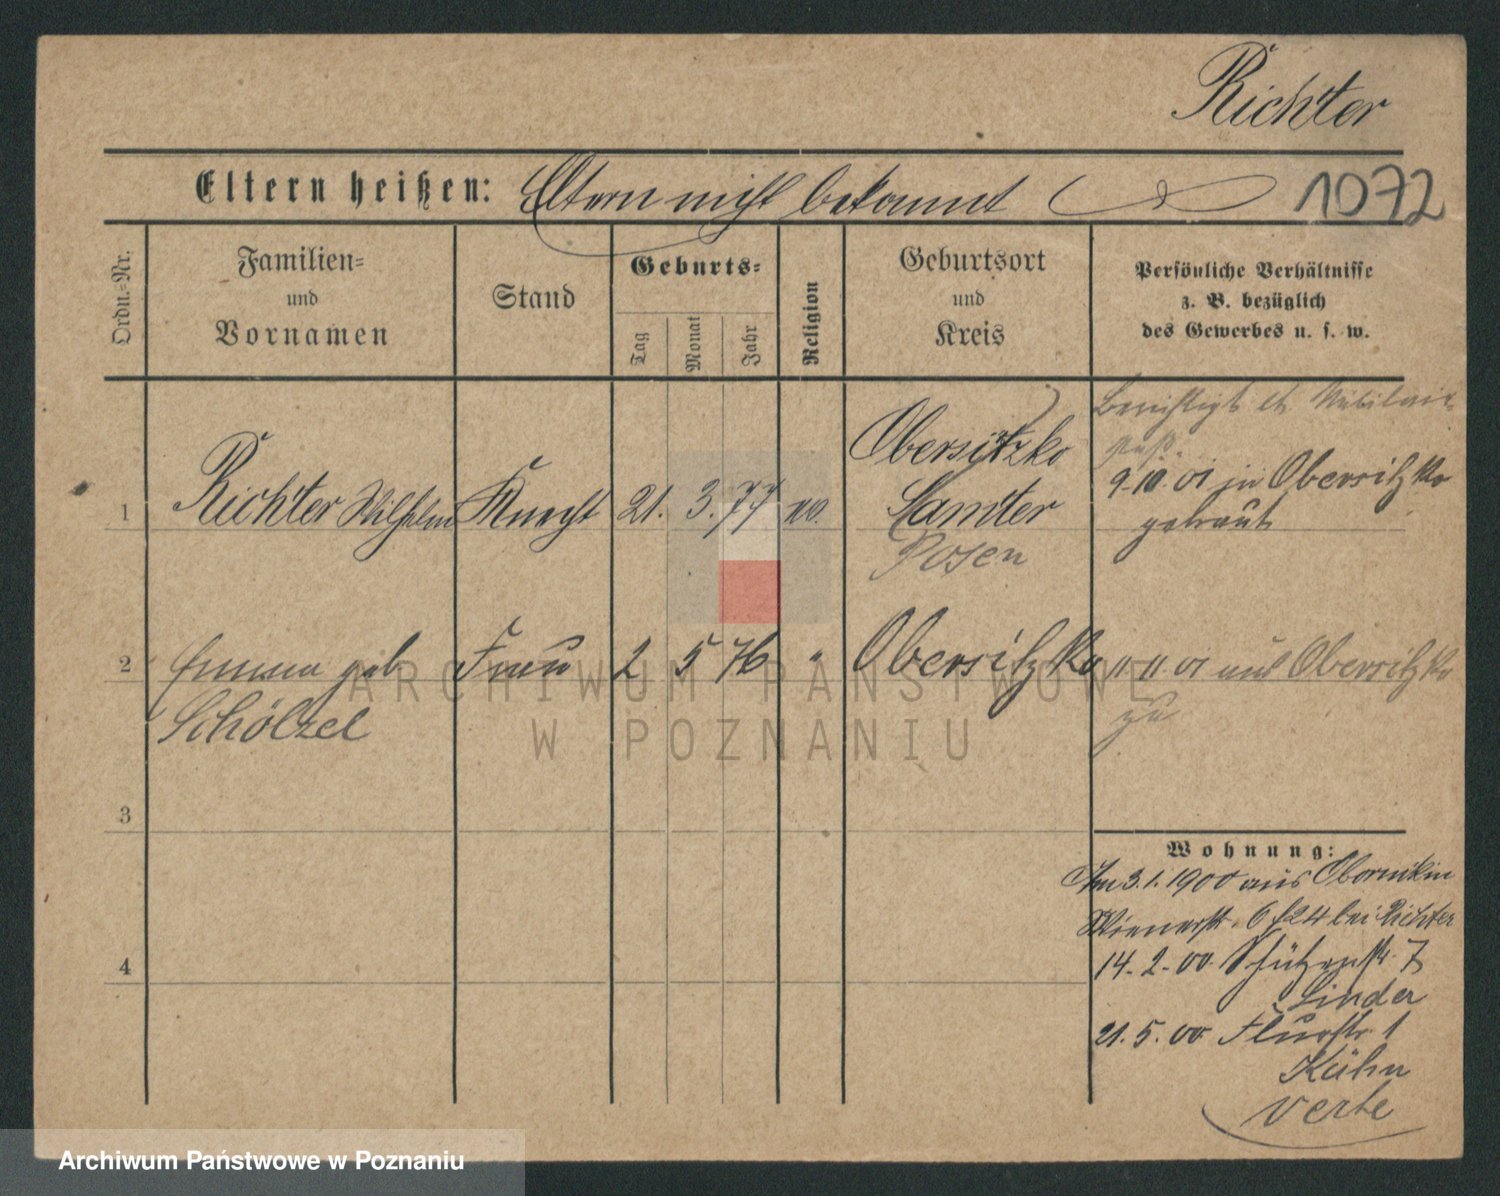 Richter
Eltern heißen: Eltern nicht bekannt
1072
Ordn.-Nr.
Familien-
und
Vornamen
Stand
Geburts-
Tag
Monat
Jahr
Religion
Geburtsort
und
Kreis
Persönliche Verhältnisse
z. B. bezüglich
des Gewerbes u. s. w.
1 Richter Wilhelm Knecht 21. 3. 77
Obersitzko
Samter
Posen
9.10.01 in Obersitzko
getraut
2 Emma geb Frau 2 5 76 " Obersitzko 11 01 aus Obersitzko
Schölzel
zu
3
4
Wohnung:
Am 3.1.1900 aus
6 bei Richter
14.2.00. Schützenstr. 7
Linder
21.5.00 Flurstr. 1
Kühn
verte
ARCHIWUM PAŃSTWOWE
W POZNANIU
Archiwum Państwowe w Poznaniu